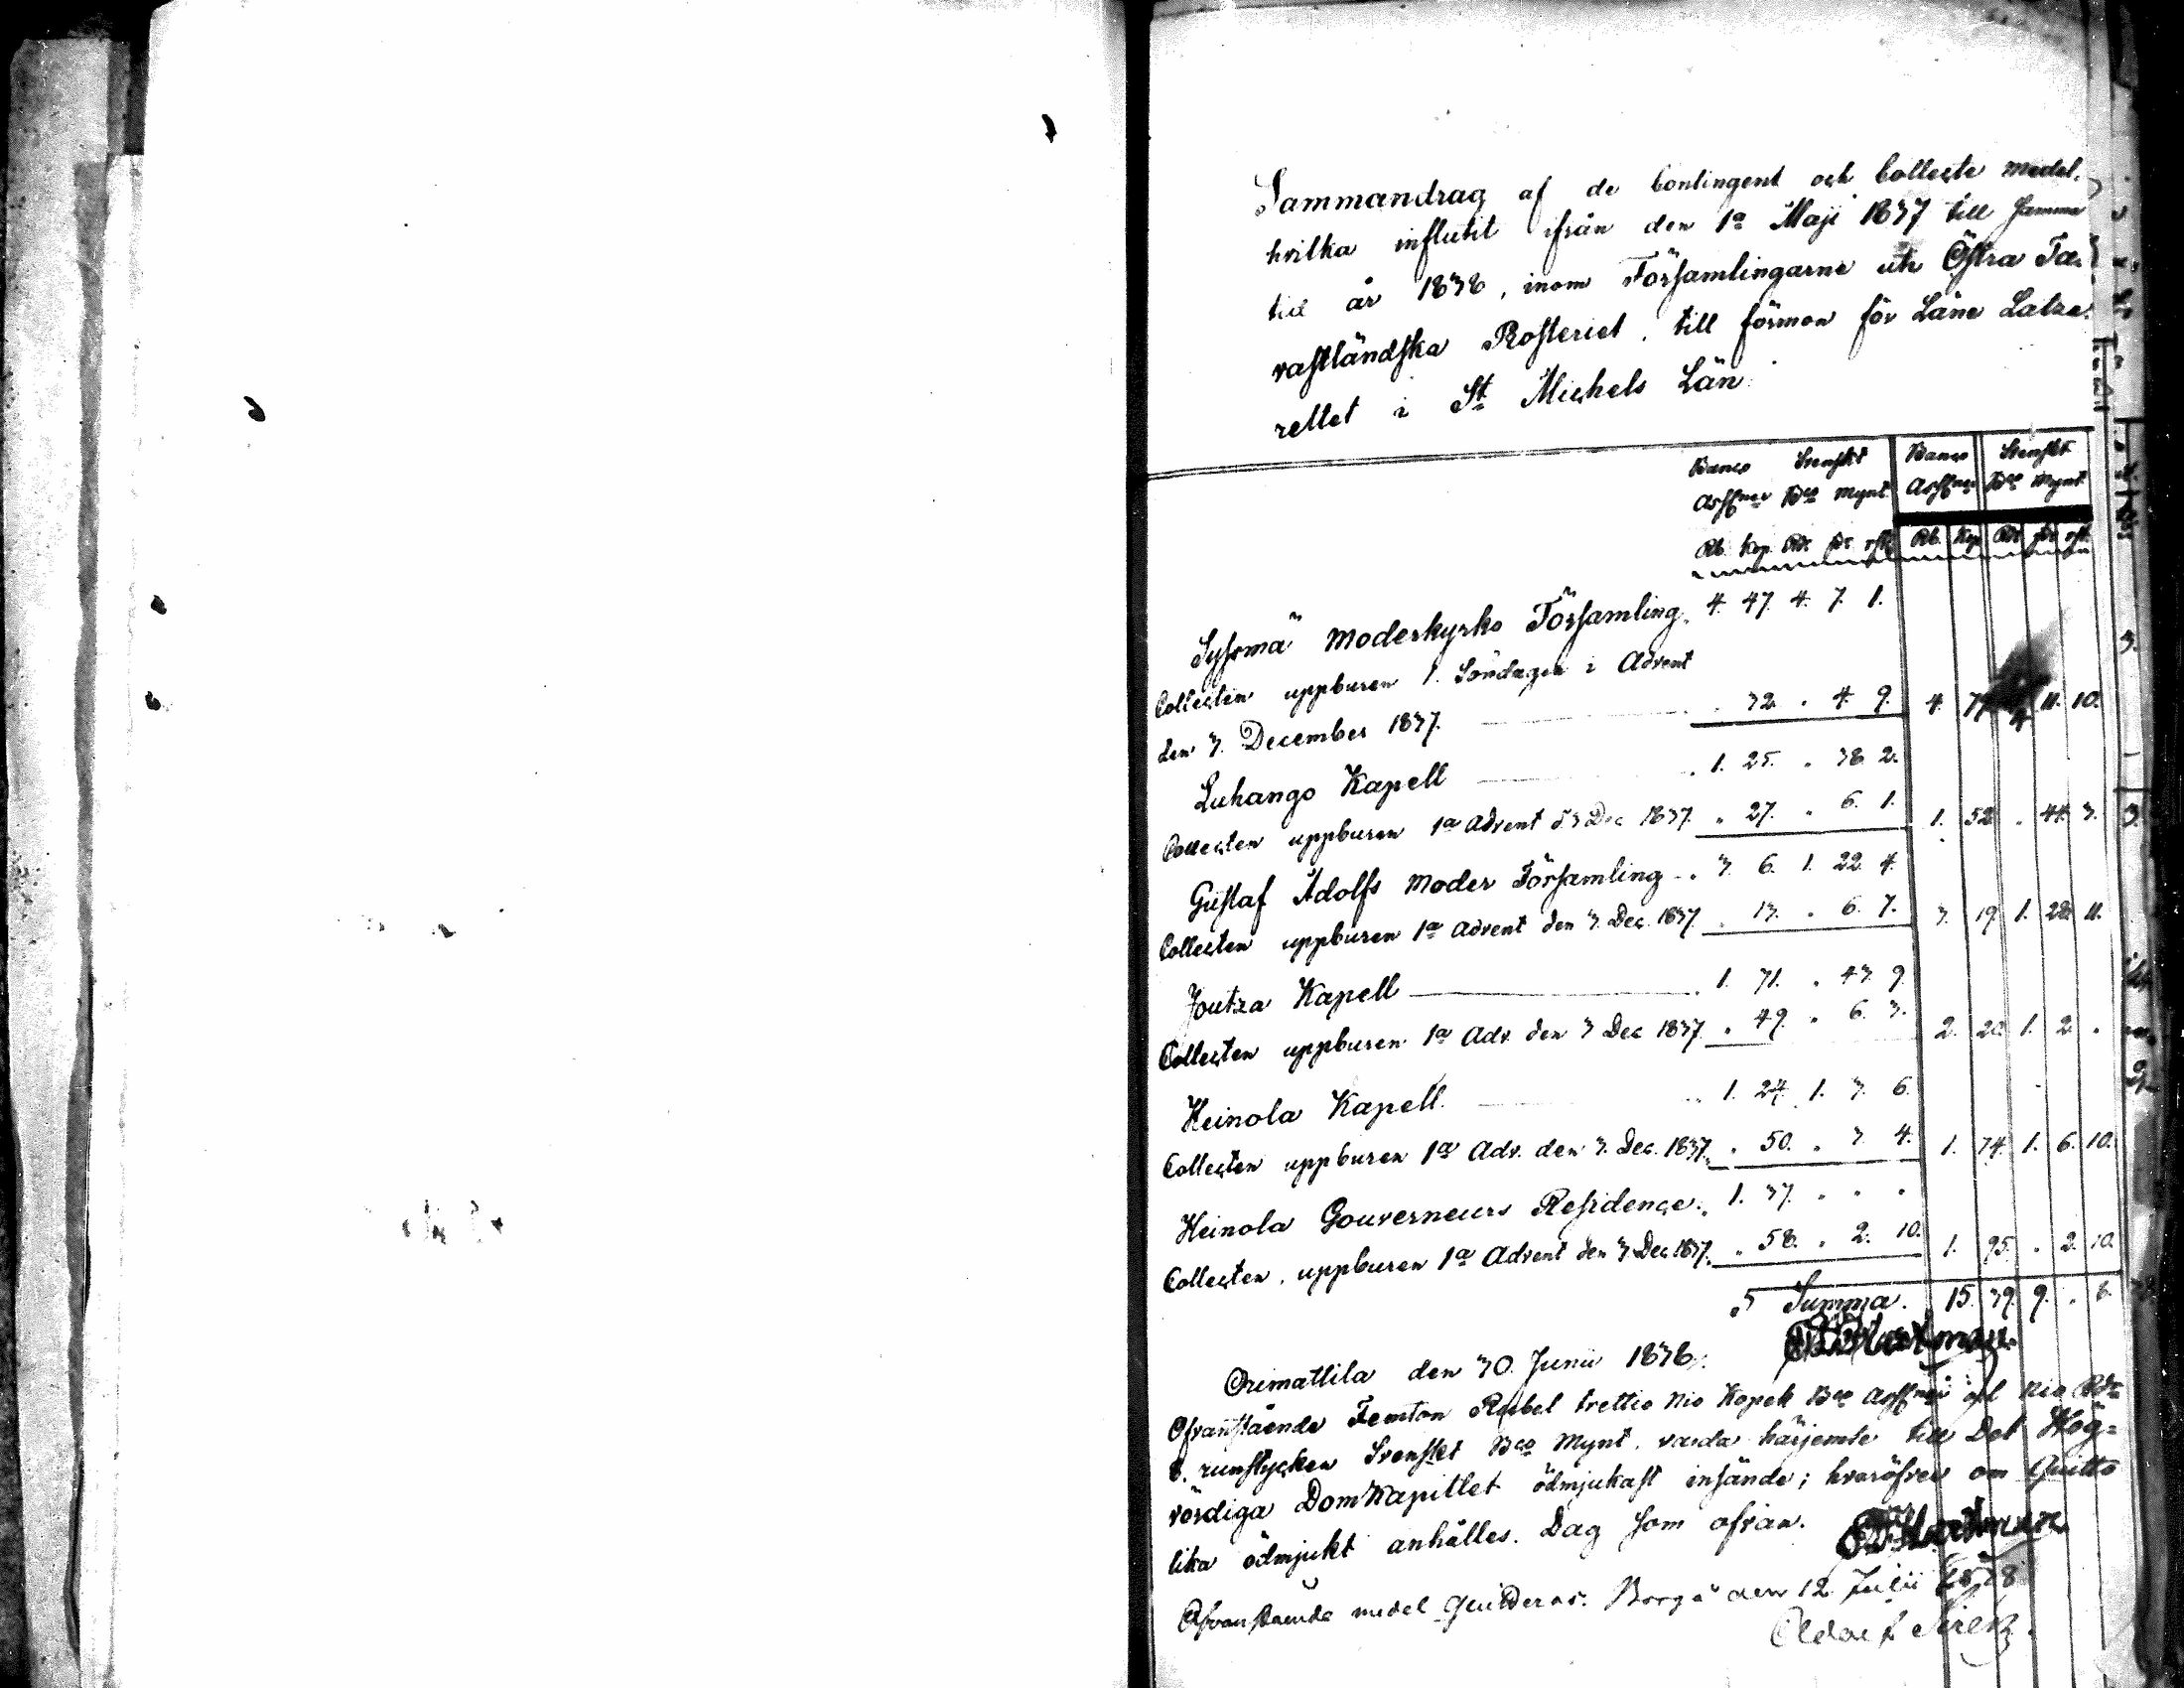 Sammandrag af de Contingent och Collecte medel,
hvilka influtit ifrån den 1a Maji 1837 till samma
tid år 1838, inom Församlingarne uti Östra Ta-
vastländska Prosteriet, till förmon för Läne Laza-
rettet i St Michels Län.
Banco Svenskt Banco Svenskt
Assgner Bco Mynt Assgner Bco Mynt
Rb. Kop. Rdr sk. rst. Rb. Kop Rdr sk. rst.
Sysmä Moderkyrko Församling. 4. 47. 4. 7. 1.
Collecten uppburen 1. Söndagen i Advent
den 3. December 1837. " 32. " 4. 9. 4. 79. 4. 11. 10.
Luhango Kapell 1. 25. " 38. 2.
Collecten uppburen 1a Advent d. 3 Dec 1837. " 27. " 6. 1. 1. 52. " 44. 3.
Gustaf Adolfs Moder Församling 3. 6. 1. 22. 4.
Collecten uppburen 1a Advent den 3. Dec. 1837 " 13. " 6. 7. 3. 19. 1. 28. 11.
Joutza Kapell 1. 71. " 43. 9.
Collecten uppburen 1a Adv. den 3 Dec 1837 " 49. " 6. 3. 2. 20. 1. 2. "
Heinola Kapell. 1. 24. 1. 3. 6.
Collecten uppburen 1a Adv. den 3. Dec. 1837. " 50. " 3. 4. 1. 74. 1. 6. 10.
Heinola Gouverneurs Residence. 1. 37. " " "
Collecten uppburen 1a Advent den 3 Dec 1837. " 58. " 2. 10. 1. 95. " 2. 10.
Summa. 15. 39. 9. " 8.
Orimattila den 30. Junii 1838.
Ofvanstående Femton Rubel trettio nio Kopek Bco Assgner och nio Rdr
8. runstycken Svenskt Bco Mynt, varda härjemte till Det Hög-
vördiga DomKapitlet ödmjukast insände; hvaröfver om Quitto
lika ödmjukt anhålles. Dag som ofvan.
Ofvanstående medel quitteras. Borgå den 12 Julii 1838